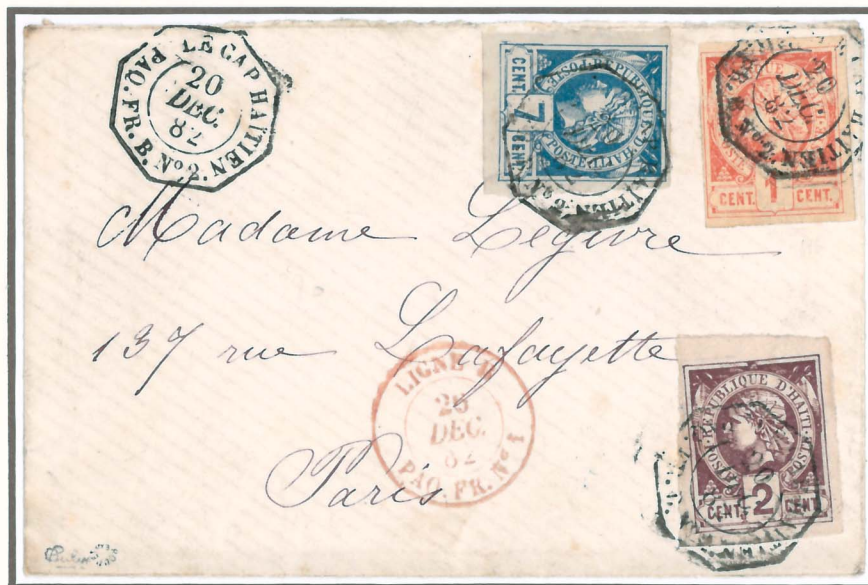 LE CAP HAITIEN.
20
DEC.
82
PAQ. FR. B. Nº 2.
REPUBLIQUE D'HAITI
POSTE
POSTE
CENT. 7 CENT.
20
DEC
82
CENT. 1 CENT.
Madame
137 rue Lafayette
Paris
LIGNE
DEC.
82
PAQ. FR. Nº 1
REPUBLIQUE D'HAITI
CENT. 2 CENT.